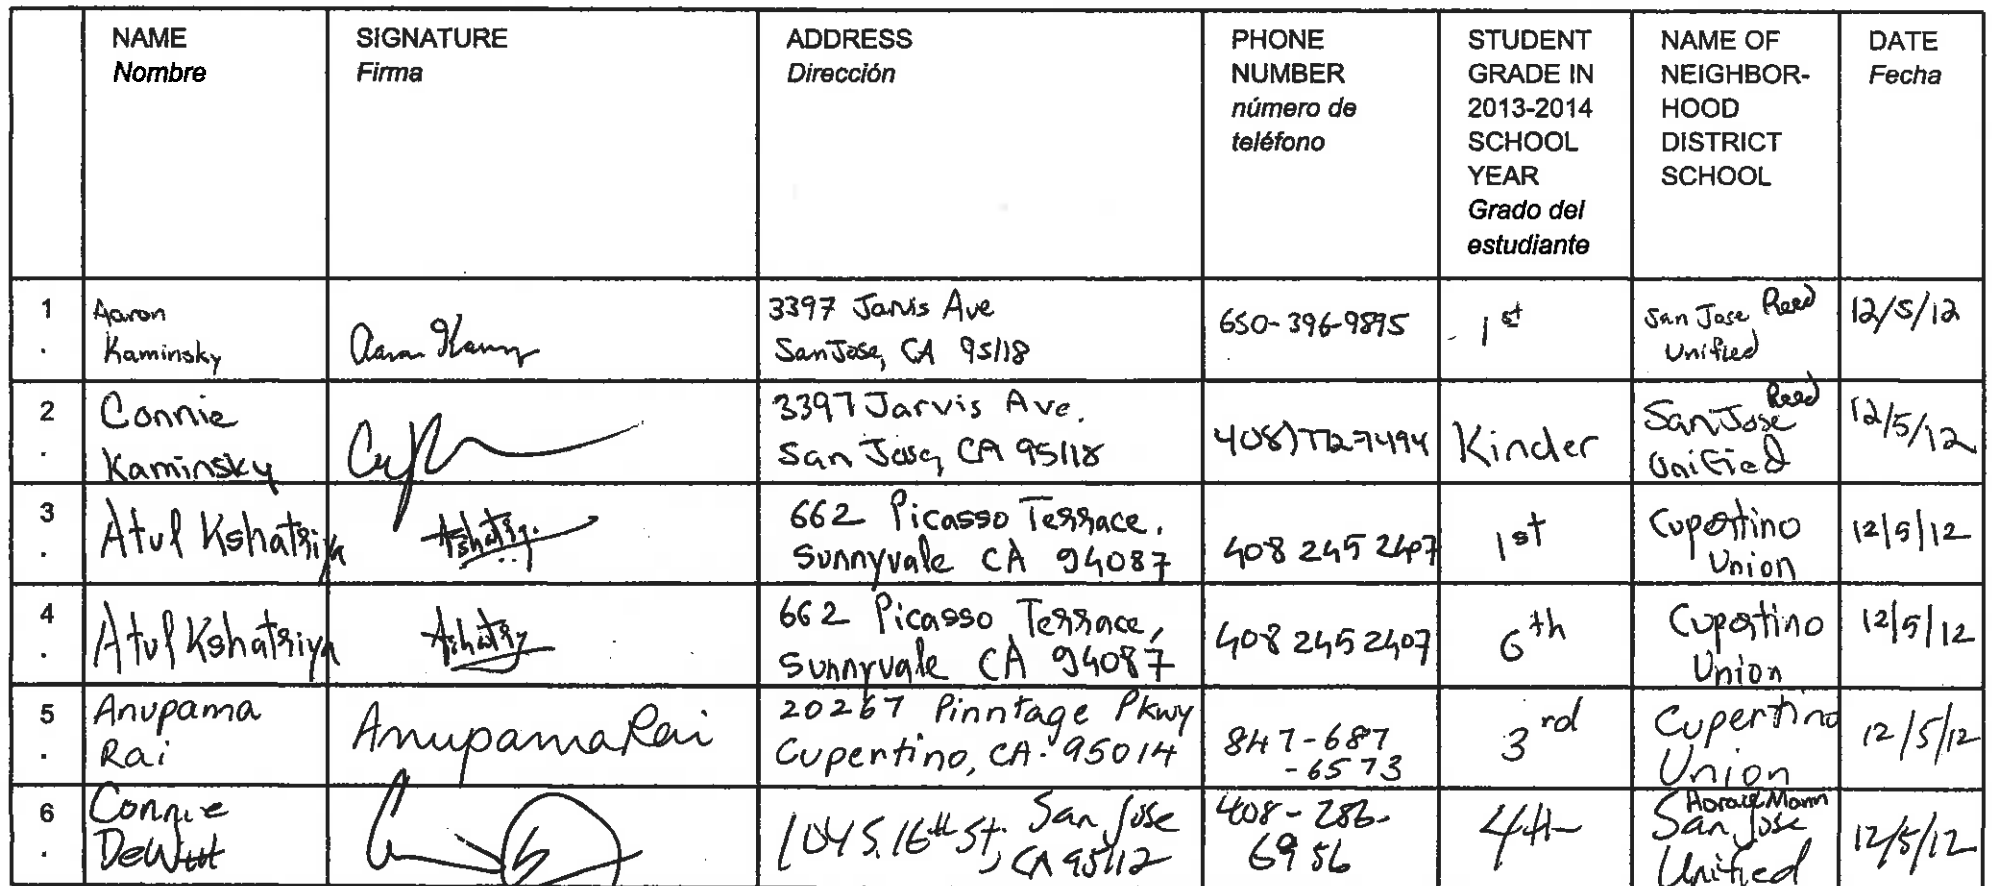 NAME
Nombre
SIGNATURE
Firma
ADDRESS
Dirección
PHONE
NUMBER
número de
teléfono
STUDENT
GRADE IN
2013-2014
SCHOOL
YEAR
Grado del
estudiante
NAME OF
NEIGHBOR-
HOOD
DISTRICT
SCHOOL
DATE
Fecha
1
.
Aaron
Kaminsky
3397 Jarvis Ave
San Jose, CA 95118
650-396-9895
1st
San Jose Reed
Unified
12/5/12
2
.
Connie
Kaminsky
3397 Jarvis Ave.
San Jose, CA 95118
Kinder
Reed
San Jose
Unified
12/5/12
3
.
Atul Kshatriya
662 Picasso Terrace,
Sunnyvale CA 94087
408 245 2407
1st
Cupertino
Union
12/5/12
4
.
Atul Kshatriya
662 Picasso Terrace,
Sunnyvale CA 94087
408 245 2407
6th
Cupertino
Union
12/5/12
5
.
Anupama
Rai
Anupama Rai
20267 Pinntage Pkwy
Cupertino, CA. 95014
847-687
-6573
3rd
Cupertino
Union
12/5/12
6
.
Connie
DeWitt
San Jose
CA 95112
408-286-
6956
4th
Horace Mann
San Jose
Unified
12/5/12